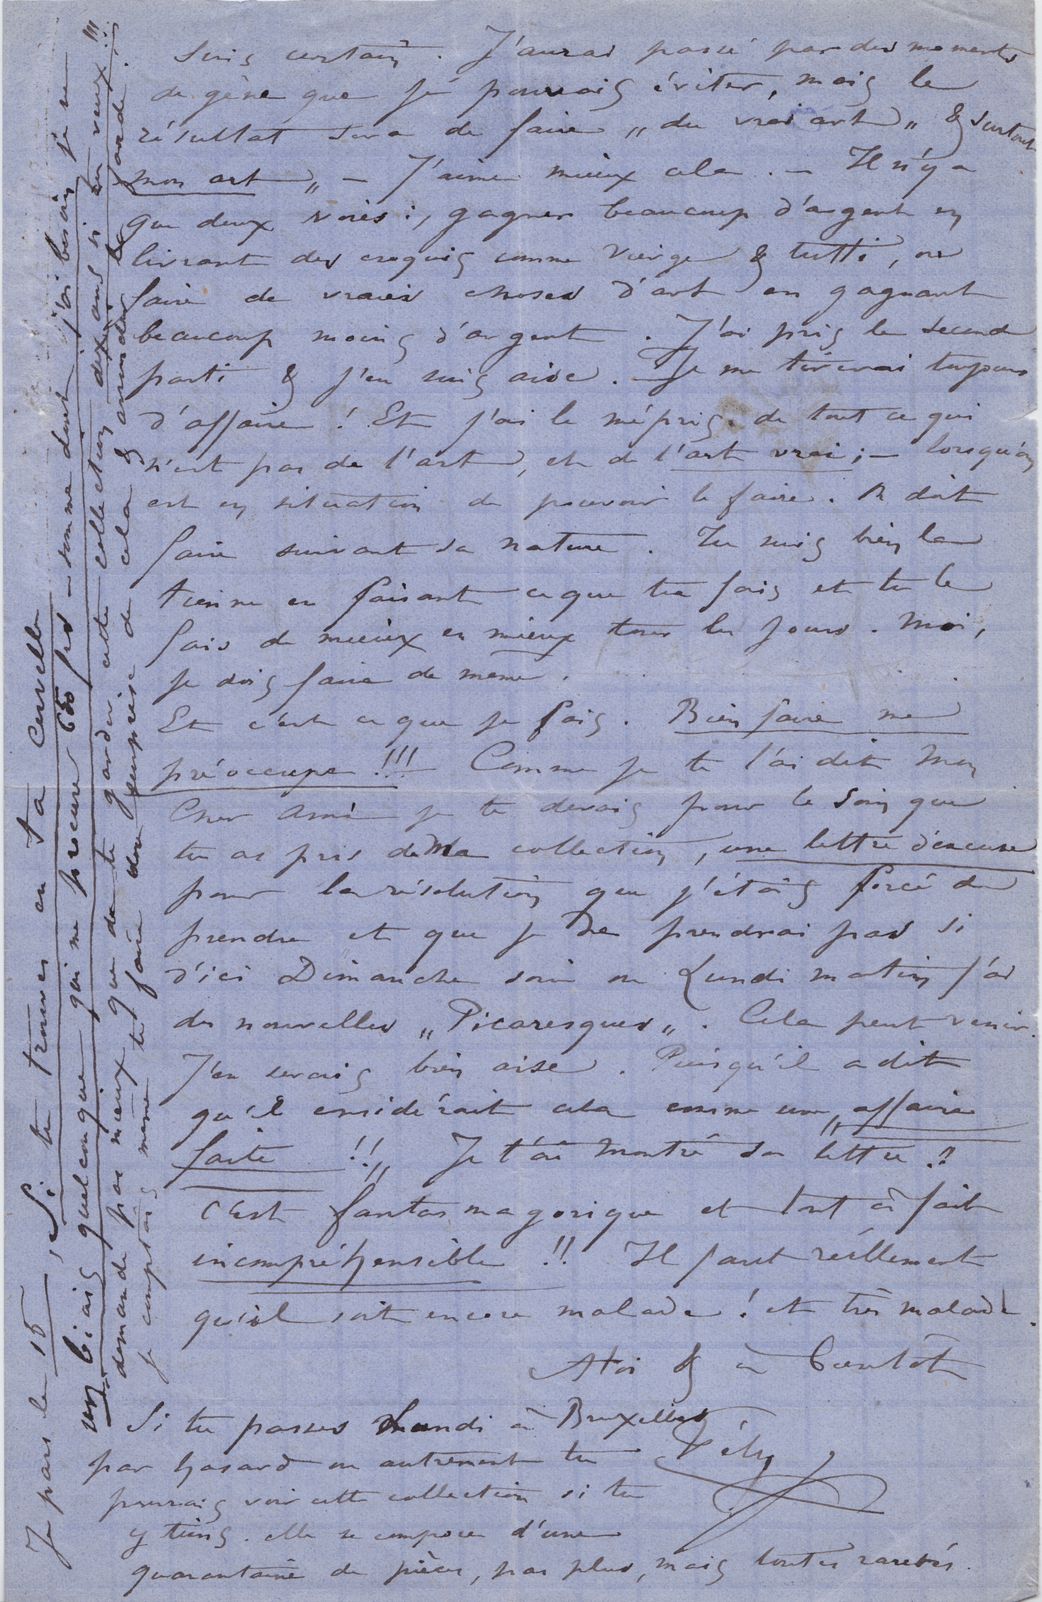 suis certain. J'aurai passé par des moments
de gêne que je pourrais éviter, mais le
résultat sera de faire „du vrai art„ & surtout
mon art„ — J'aime mieux cela. — Il n'y a
que deux voies:, gagner beaucoup d'argent en
livrant des croquis comme Vierge & tutti, ou
faire de vraies choses d'art en gagnant
beaucoup moins d'argent. J'ai pris le second
parti & j'en suis aise. Je me tirerai toujours
d'affaire! Et j'ai le mépris de tout ce qui
n'est pas de l'art, et de l'art vrai; — lorsqu'on
est en situation de pouvoir le faire. On doit
faire suivant sa nature. Tu suis bien la
tienne en faisant ce que tu fais et tu le
fais de mieux en mieux tous les jours. Moi,
je dois faire de meme.
Et c'est ce que je fais. Bien faire me
préoccupe!!! Comme je te l'ai dit Mon
Cher Ami je te devais pour le soin que
tu as pris de Ma collection, une lettre d'excuse
pour la résolution que j'étais forcé de
prendre et que je ne prendrai pas si
d'ici Dimanche soir ou Lundi matin j'ai
des nouvelles „Picaresques„. Cela peut venir.
J'en serais bien aise. Puisqu'il a dit
qu'il considérait cela comme une „affaire
faite!!„ Je t'ai montré sa lettre?
c'est fantasmagorique et tout à fait
incompréhensible!! Il faut réellement
qu'il soit encore malade! et très malade.
A toi & à Bientôt
Fély
Si tu passes Lundi à Bruxelles
par hasard ou autrement tu
pourrais voir cette collection si tu
y tiens. elle se compose d'une
quarantaine de pièces, pas plus, mais toutes raretés.
Je pars le 15, Si tu trouves en ta cervelle
un biais quelconque qui me procure 600 frs — somme dont j'ai besoin je ne
demande pas mieux que de te garder cette collection dix ans si tu veux!!!
je comptais même te faire la surprise de cela &